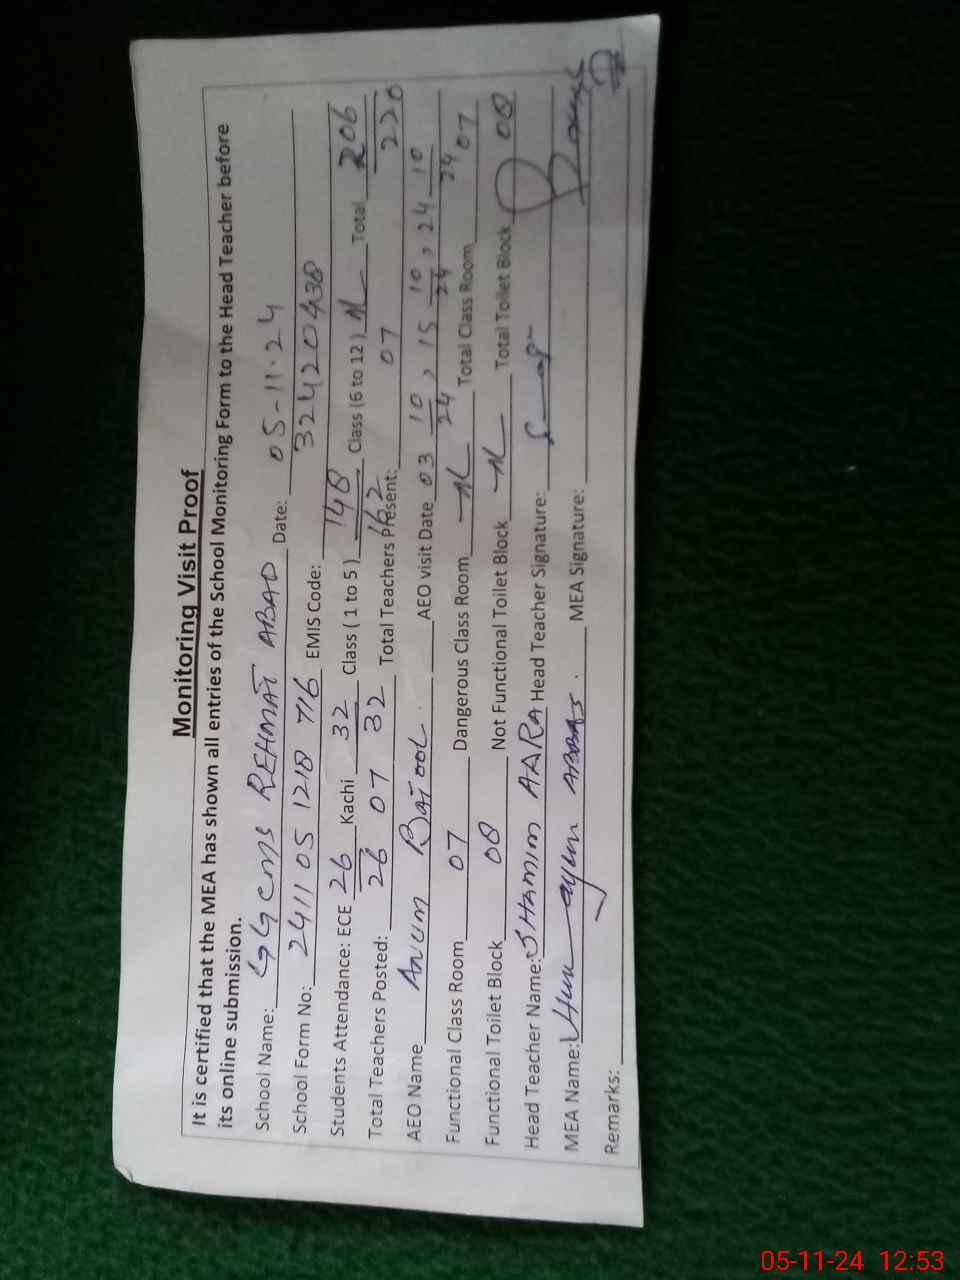 Monitoring Visit Proof
It is certified that the MEA has shown all entries of the School Monitoring Form to the Head Teacher before
its online submission.
School Name: GG CMS REHMAT ABAD Date: 05-11-24
School Form No: 2411 05 1218 716 EMIS Code: 32420438
Students Attendance: ECE 26/26 Kachi 32/32 Class ( 1 to 5 ) 148/162 Class (6 to 12 ) NL Total 206/220
Total Teachers Posted: 07 Total Teachers Present: 07
AEO Name ANUM BATOOL. AEO visit Date 03 10/24, 15 10/24, 24 10/24
Functional Class Room 07 Dangerous Class Room NL Total Class Room 07
Functional Toilet Block 08 Not Functional Toilet Block NL Total Toilet Block 08
Head Teacher Name: SHAMIM AARA Head Teacher Signature:
MEA Name: Humayun ABBAS. MEA Signature:
Remarks:
05-11-24 12:53